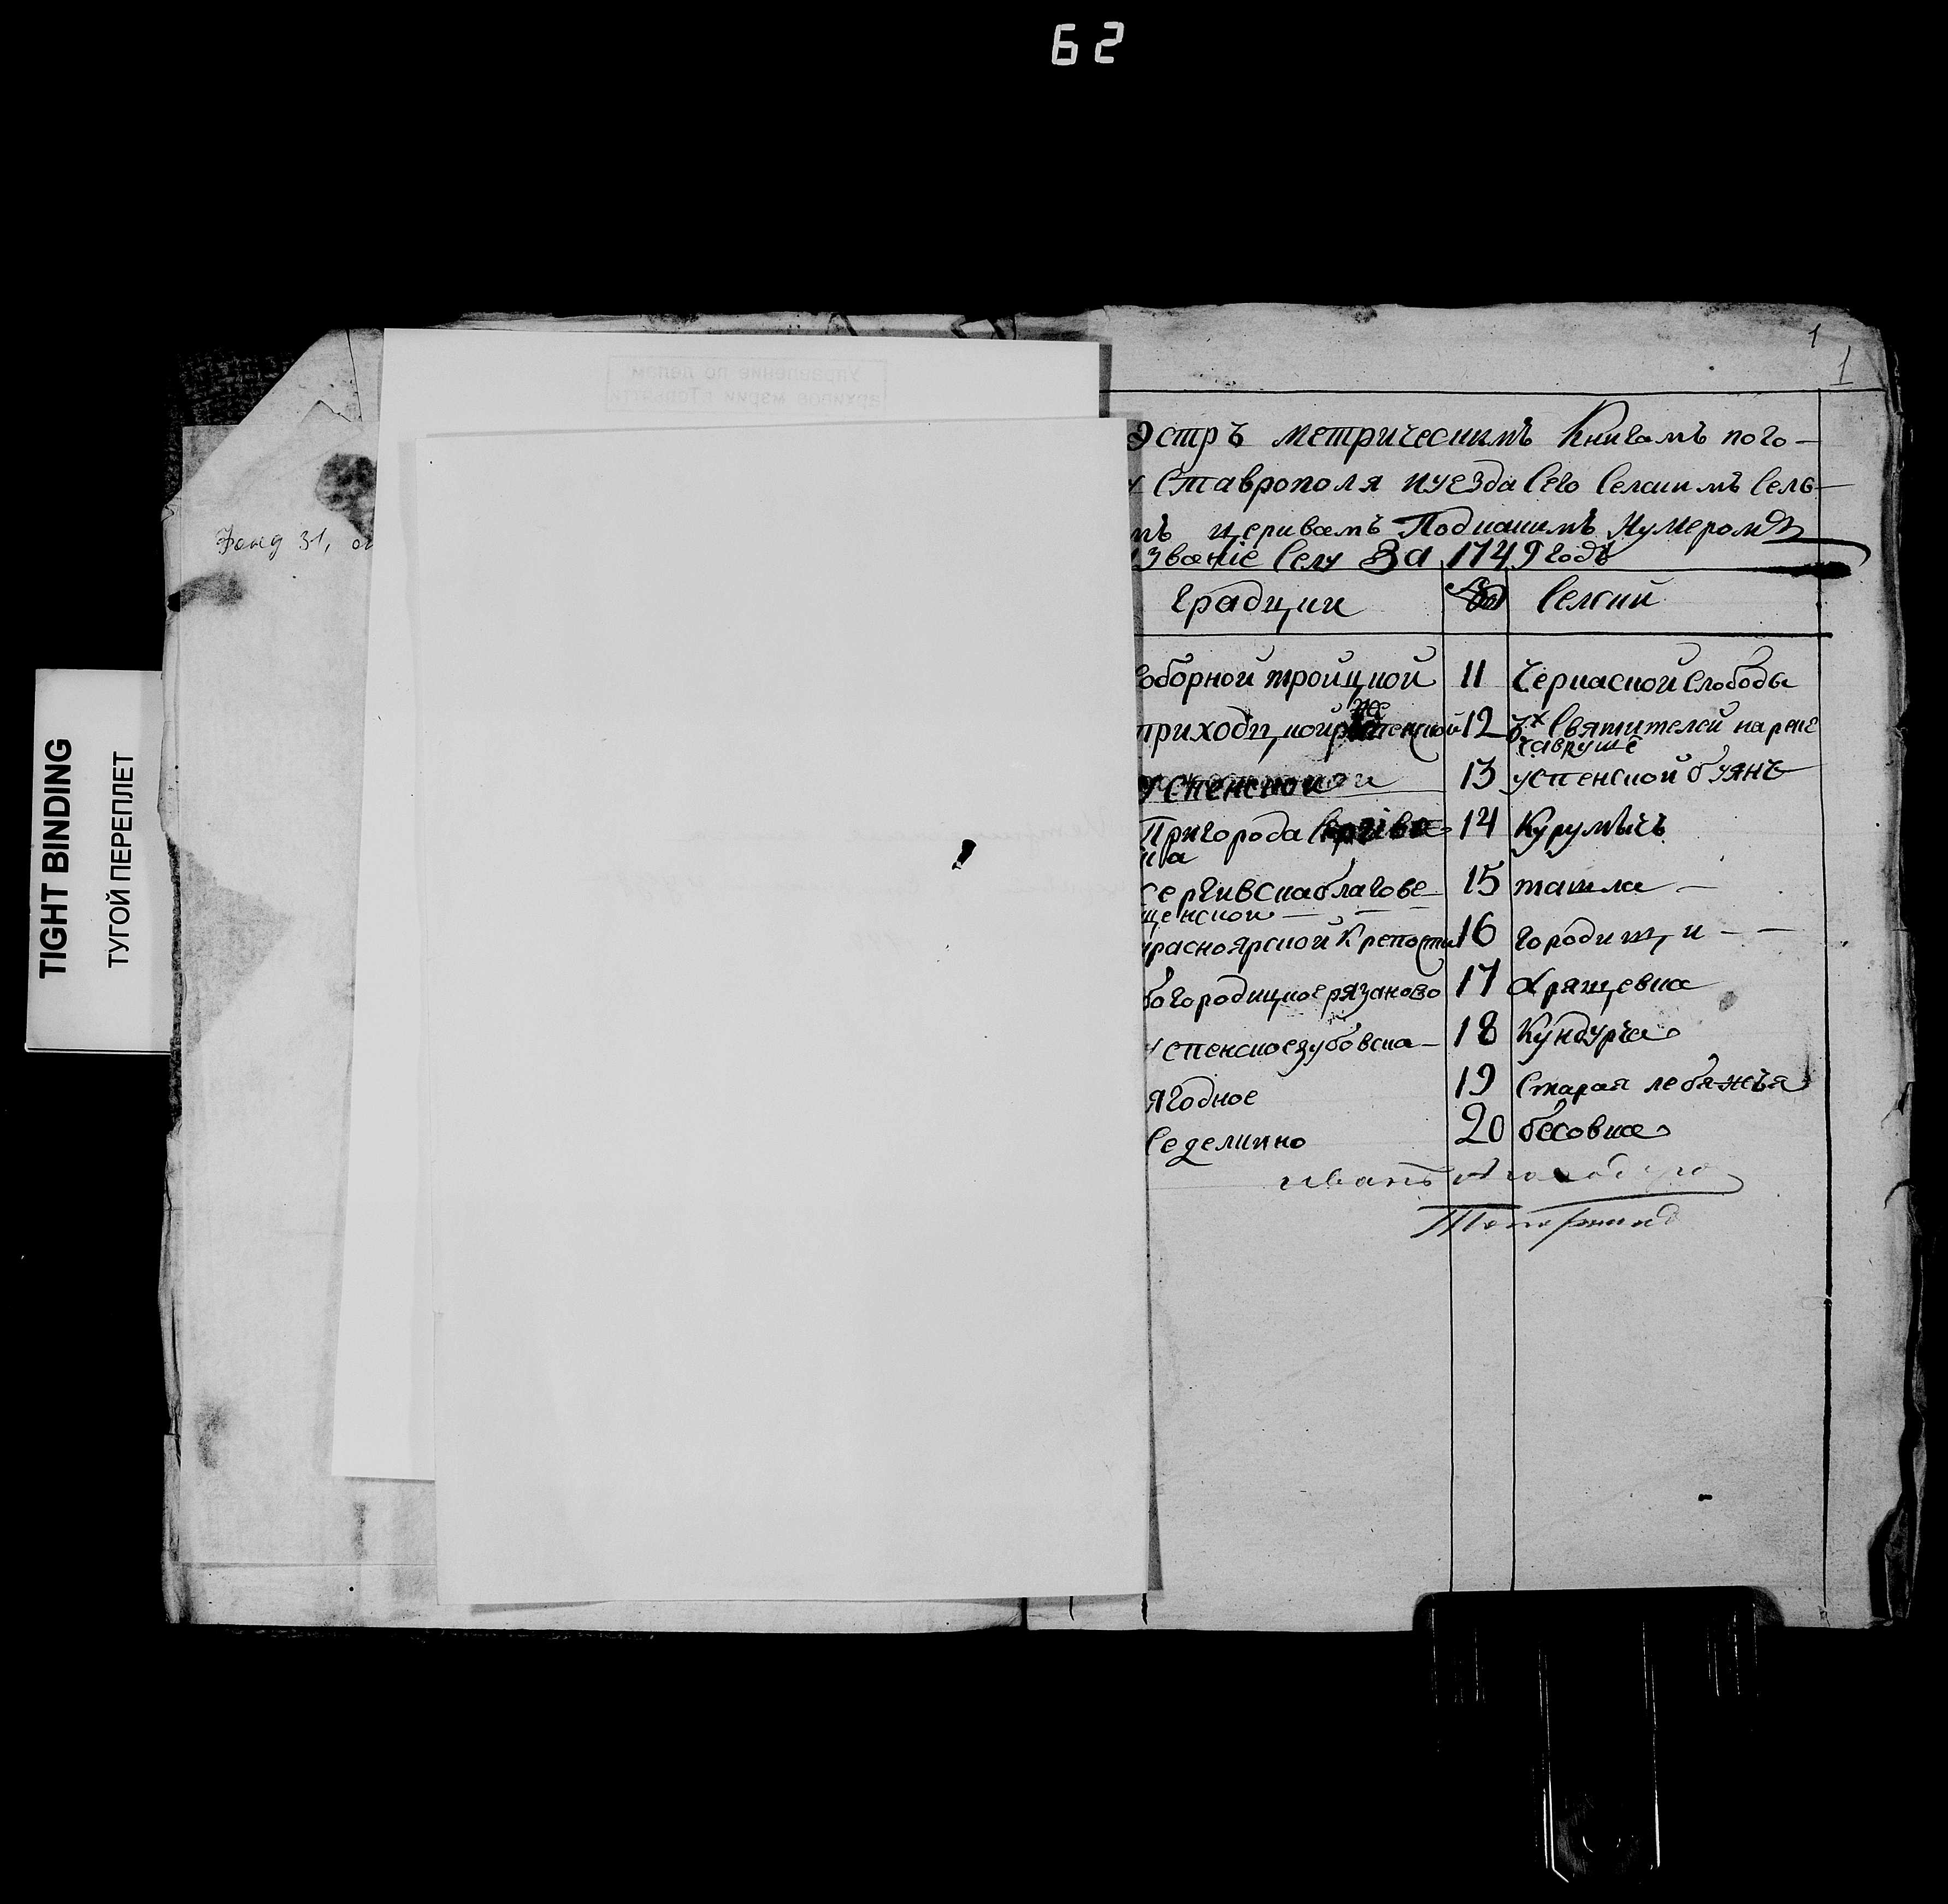 62
1
1
TIGHT BINDING
ТУГОЙ ПЕРЕПЛЕТ
Управление по делам
архивов мэрии г. Тольятти
Фонд 31, оп
эстръ метрическимъ Книгамъ пого-
Ставрополя иуезда Сего Селскимъ Селъ-
мъ церквамъ Подкакимъ Нумеромъ
званіе Селу За 1749 годъ
Градцкии Селскии
соборной троицкой 11 Черкаской Слободы
приходцкой 12 3х Святителей на реке
Чавруше
Успенской 13 успенской буянъ
Пригорода 14 Курумычъ
ка
сергивска благове- 15 ташла -
щенской - - -
красноярской Крепости 16 городищи - -
богородицкое рязаново 17 хрящевка
успенское зубовка- 18 Кундурча
ягодное 19 Старая лебяжъя
Сускино 20 бесовка
иванъ